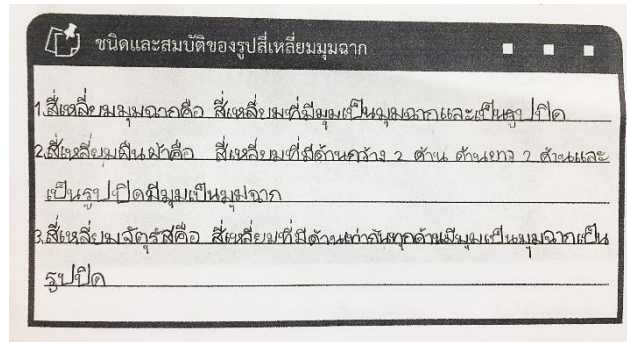 ชนิดและสมบัติของรูปสี่เหลี่ยมมุมฉาก
1. สี่เหลี่ยมมุมฉากคือ สี่เหลี่ยมที่มีมุมเป็นมุมฉากและเป็นรูปปิด
2. สี่เหลี่ยมผืนผ้าคือ สี่เหลี่ยมที่มีด้านกว้าง 2 ด้าน ด้านยาว 2 ด้านและ
เป็นรูปปิดมีมุมเป็นมุมฉาก
3. สี่เหลี่ยมจัตุรัสคือ สี่เหลี่ยมที่มีด้านเท่ากันทุกด้านมีมุมเป็นมุมฉากเป็น
รูปปิด